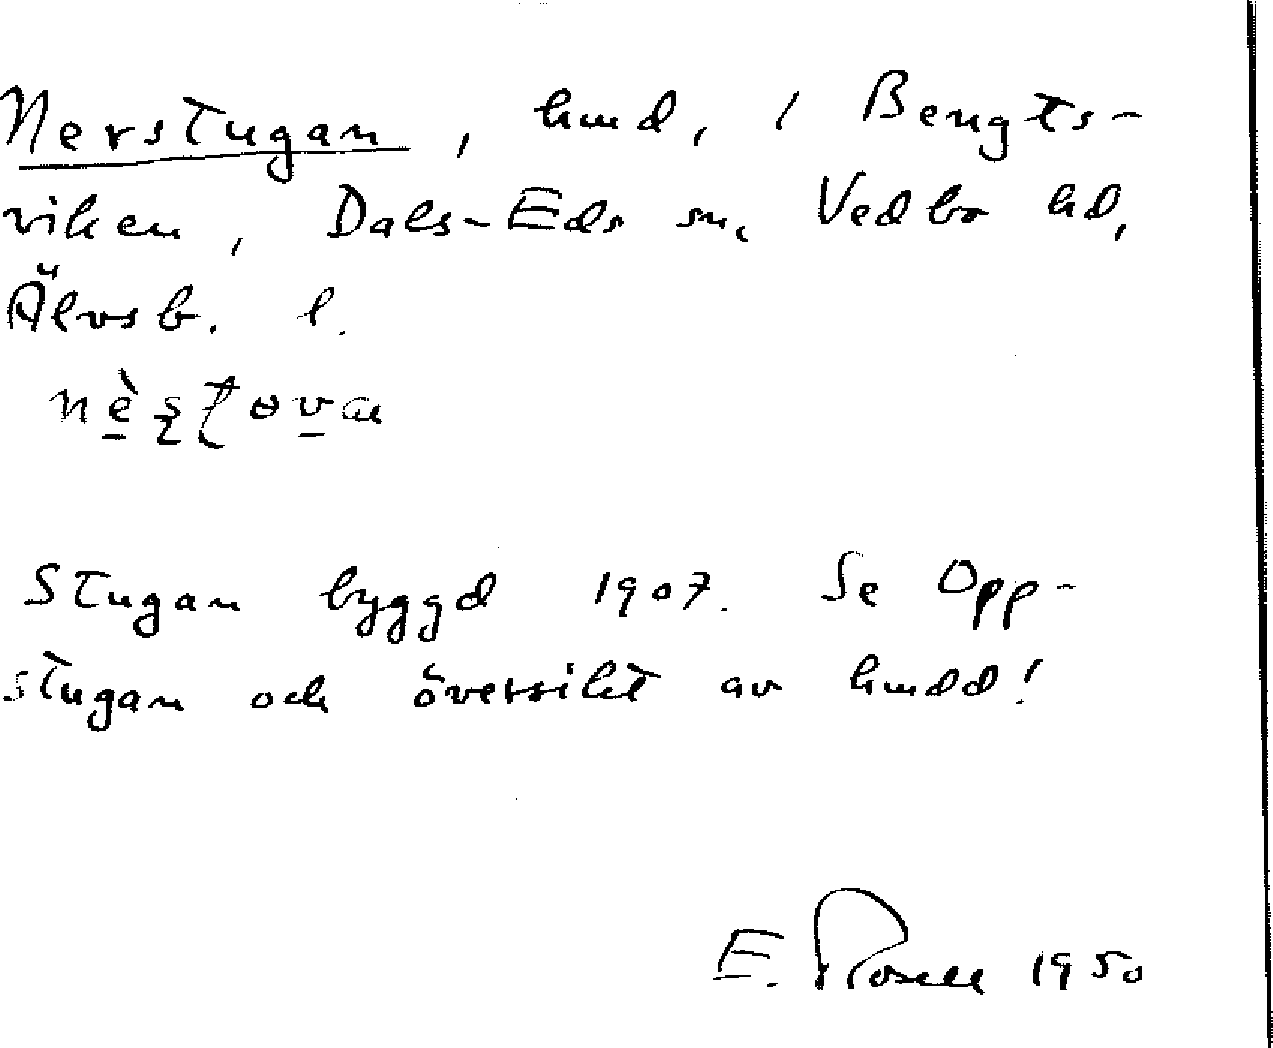 Nerstugan, hmd, i Bengts-
viken, Dals-Eds sn, Vedbo hd,
Älvsb. l.
Stugan byggd 1907. Se Opp-
stugan och översikt av hmdd!
E. Rosell 1950